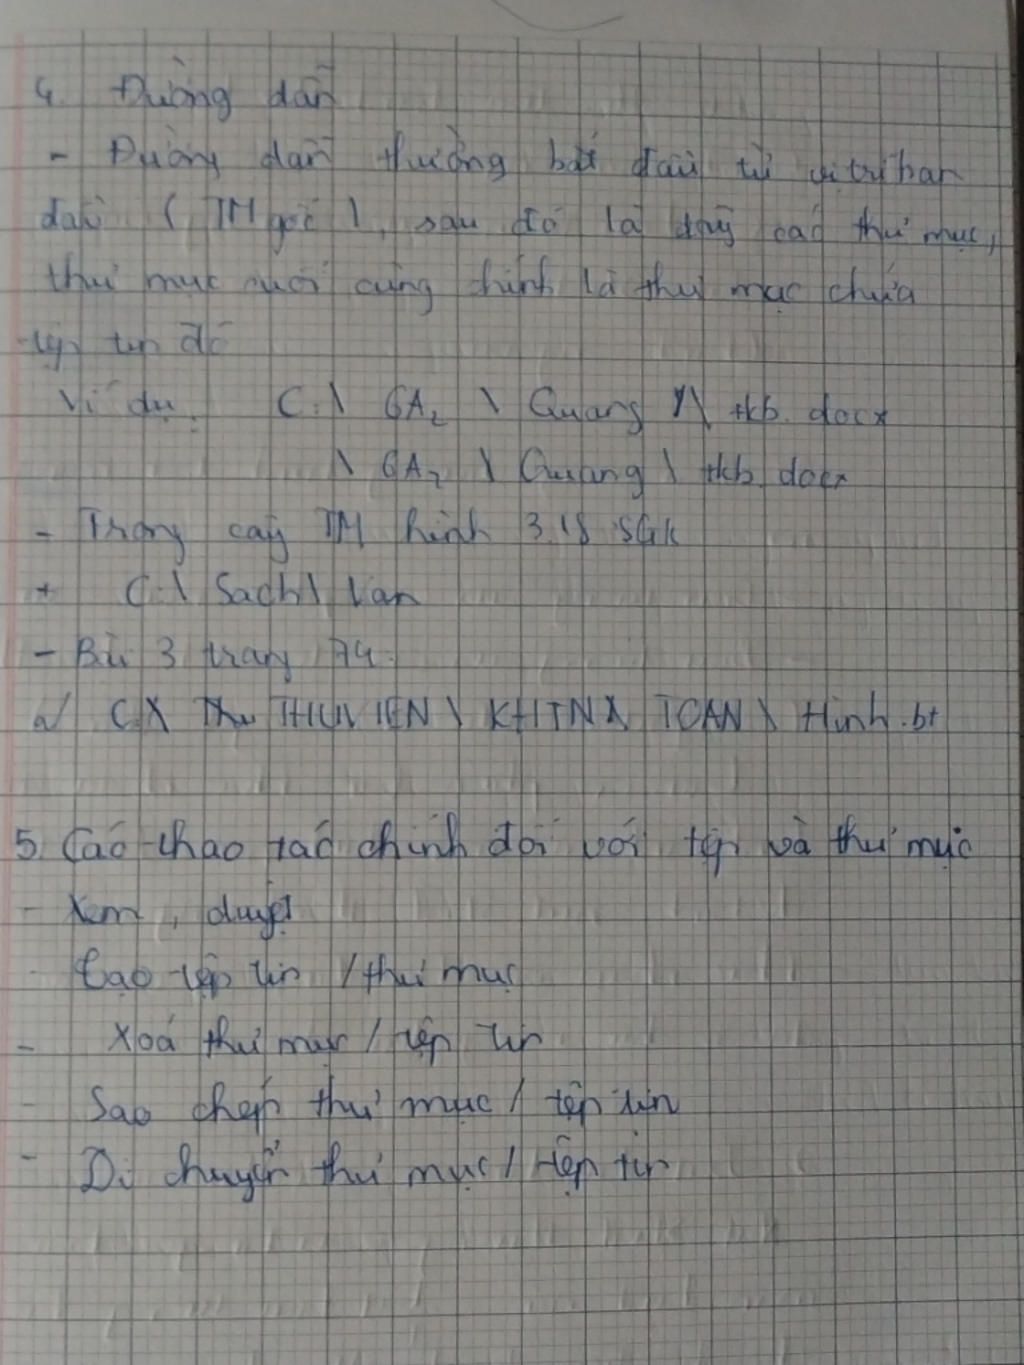 4. Đường dẫn
- Đường dẫn thường bắt đầu từ vị trí ban
đầu ( TM gốc ), sau đó là dãy các thư mục,
thư mục cuối cùng chính là thư mục chứa
tệp tin đó
Ví dụ: C:\ 6A2 \ Quang \ tkb.docx
\ 6A2 \ Quang \ tkb.docx
- Trong cây TM hình 3.18 SGK
+ C:\ Sach \ Van
- Bài 3 trang 74.
a/ C:\ THUVIEN \ KHTN \ TOAN \ Hinh.bt
5. Các thao tác chính đối với tệp và thư mục
- Xem, duyệt
- Tạo tệp tin / thư mục
- Xoá thư mục / tệp tin
- Sao chép thư mục / tệp tin
- Di chuyển thư mục / tệp tin